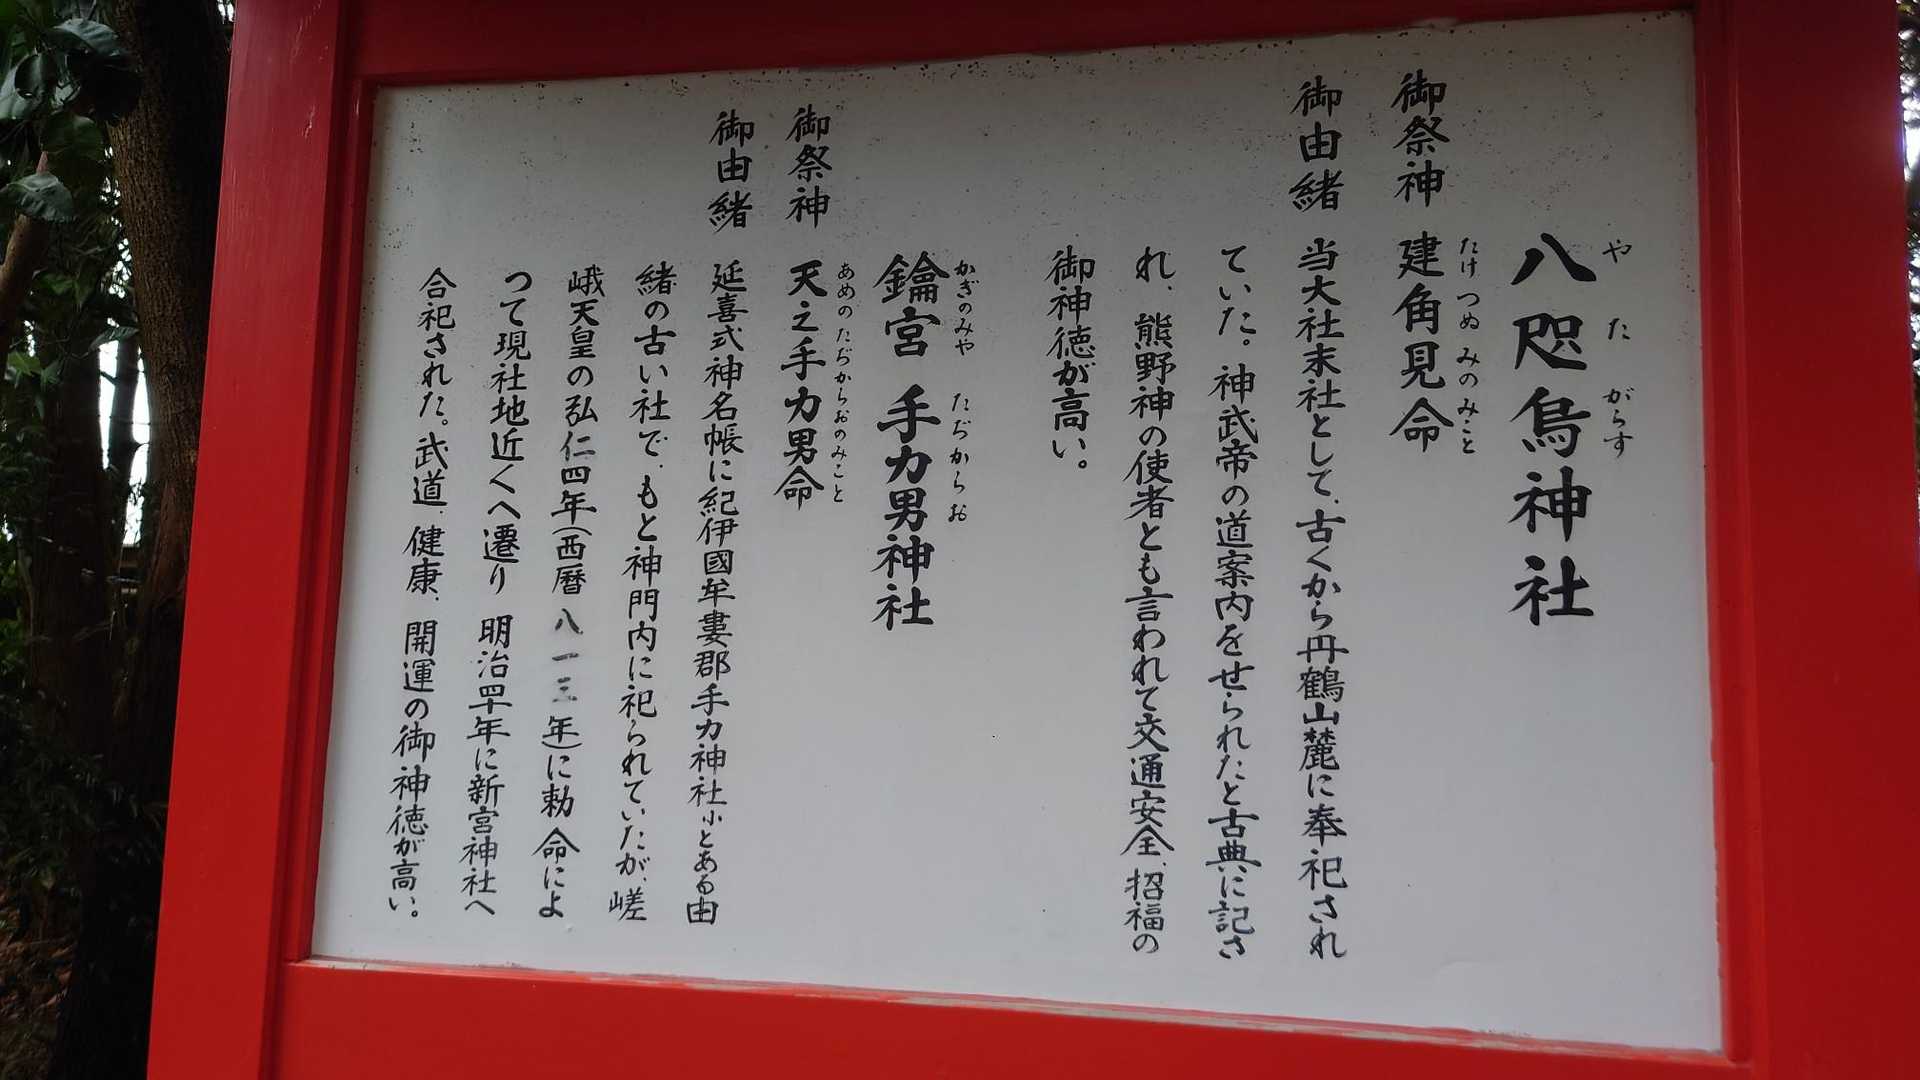 八咫烏神社
や た がらす
御祭神 建角見命
たけ つぬ みの みこと
御由緒 当大社末社として、古くから丹鶴山麓に奉祀され
ていた。神武帝の道案内をせられたと古典に記さ
れ、熊野神の使者とも言われて交通安全、招福の
御神徳が高い。
鑰宮 手力男神社
かぎのみや たぢからお
御祭神 天之手力男命
あめの たぢからおのみこと
御由緒 延喜式神名帳に紀伊國牟婁郡手力神社小とある由
緒の古い社で、もと神門内に祀られていたが、嵯
峨天皇の弘仁四年(西暦八一三年)に勅命によ
つて現社地近くへ遷り 明治四十年に新宮神社へ
合祀された。武道、健康、開運の御神徳が高い。